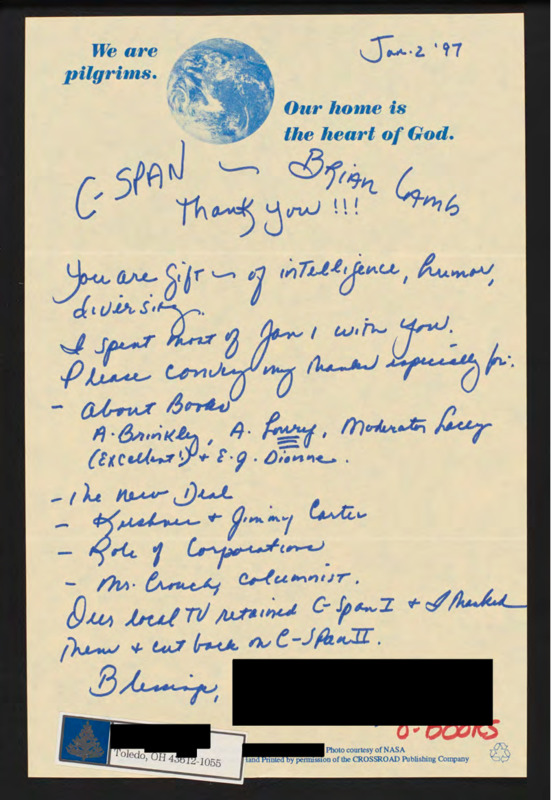 We are
pilgrims.
Jan. 2 '97
Our home is
the heart of God.
C-SPAN ~ BRIAN LAMB
Thank you !!!
You are gift ~ of intelligence, humor,
diversity.
I spent most of Jan 1 with you.
Please convey my thanks especially for:
- About Books
A. Brinkley, A. Lowry, Moderator Lacey
(Excellent!) + E.g. Dionne.
- The New Deal
- Kushner + Jimmy Carter
- Role of Corporations
- Mr. Crouch, columnist.
Our local TV retained C-Span I + I thanked
them + cut back on C-Span II.
Blessings,
O-BOOKS
Toledo, OH 43612-1055
Photo courtesy of NASA
and Printed by permission of the CROSSROAD Publishing Company